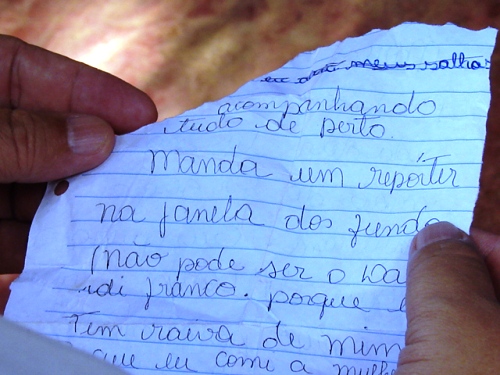 meus
acompanhando
tudo de perto.
Manda um repórter
na janela dos fundo
(não pode ser o Wa
idi franco. porque e
Tem raiva de mim
que eu comi a mulhe